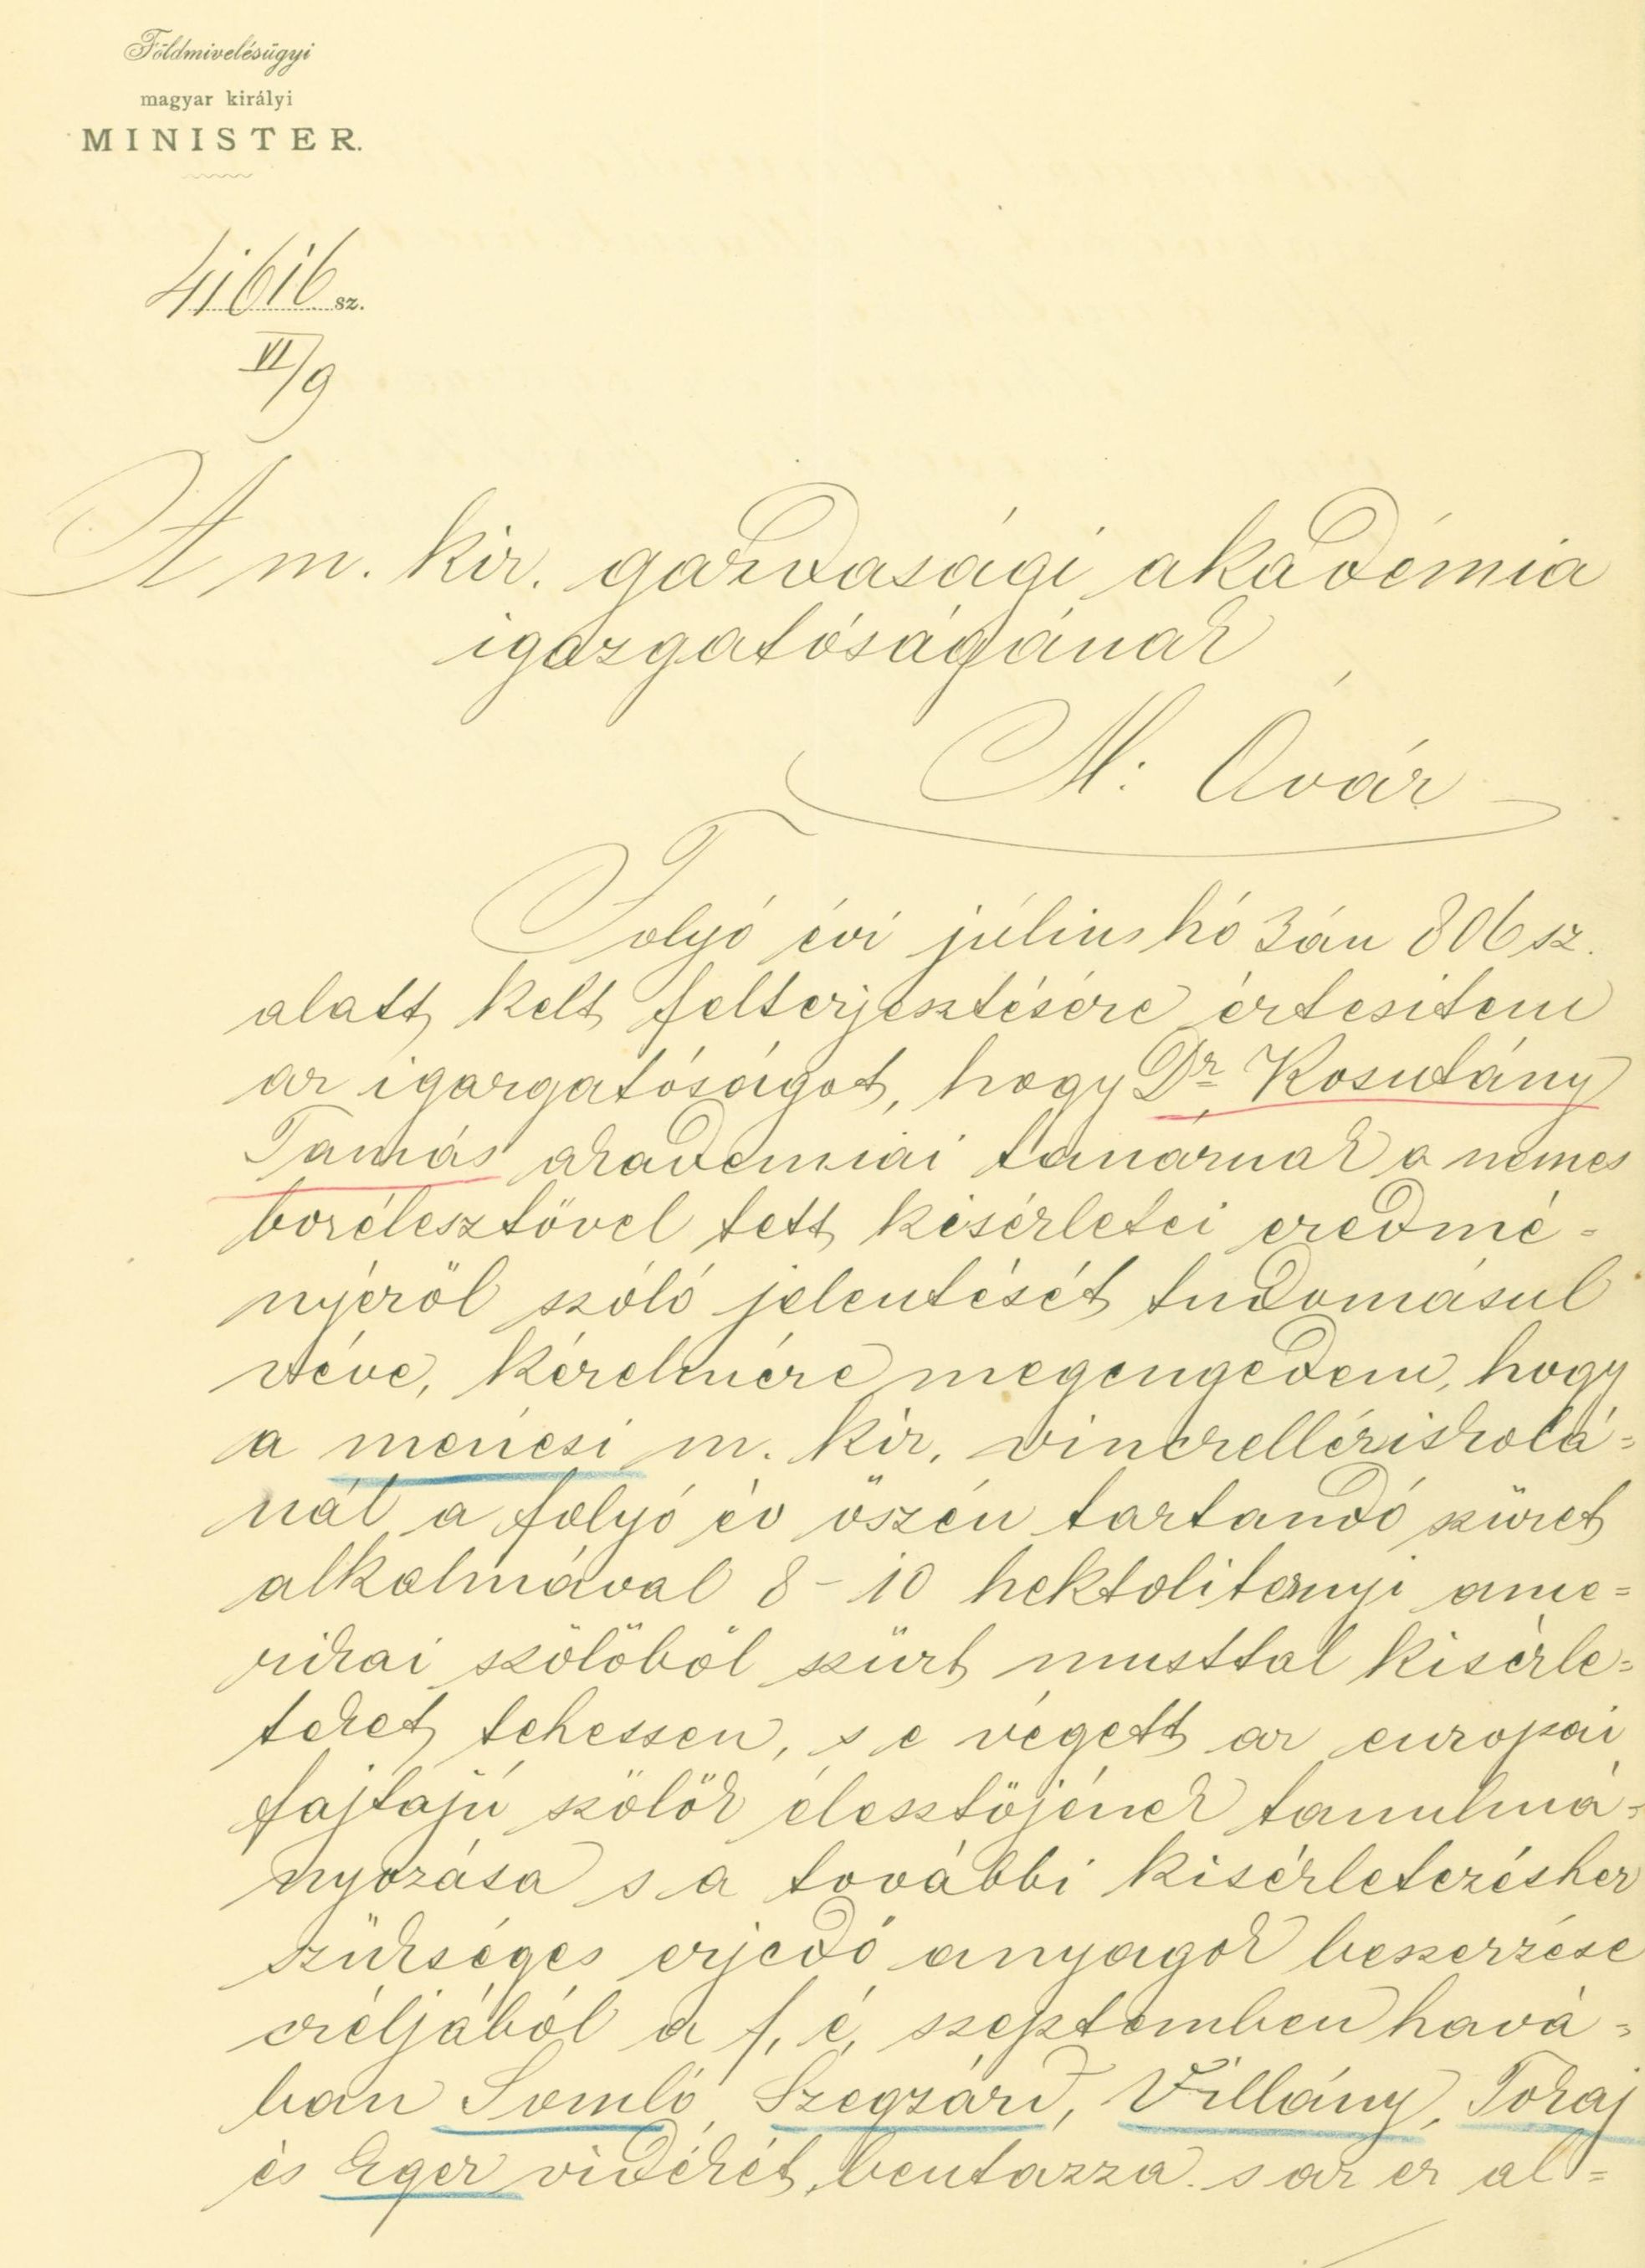 Földmivelésügyi
magyar királyi
MINISTER.
41616 sz.
VI/9
A m. kir. gazdasági akadémia
igazgatóságának
M: Óvár
Folyó évi július hó 3án 806 sz.
alatt kelt felterjesztésére értesitem
az igazgatóságot, hogy Dr. Kosutány
Tamás akademiai tanárnak a nemes
borélesztővel tett kisérletei eredmé-
nyéröl szóló jelentését tudomásul
véve, kérelmére megengedem, hogy
a ménesi m. kir. vinczellériskolá=
nál a folyó év őszén tartandó szüret
alkalmával 8-10 hektoliternyi ame=
rikai szölőből szürt musttal kisérle=
teket tehessen, s e végett az europai
fajtajú szölők élesztöjének tanulmá=
nyozása s a további kisérletezéshez
szükséges erjedő anyagok beszerzése
czéljából a f. é. szeptember havá=
ban Somló, Szegzárd, Villány, Tokaj
és Eger vidékét beutazza. s az ez al=